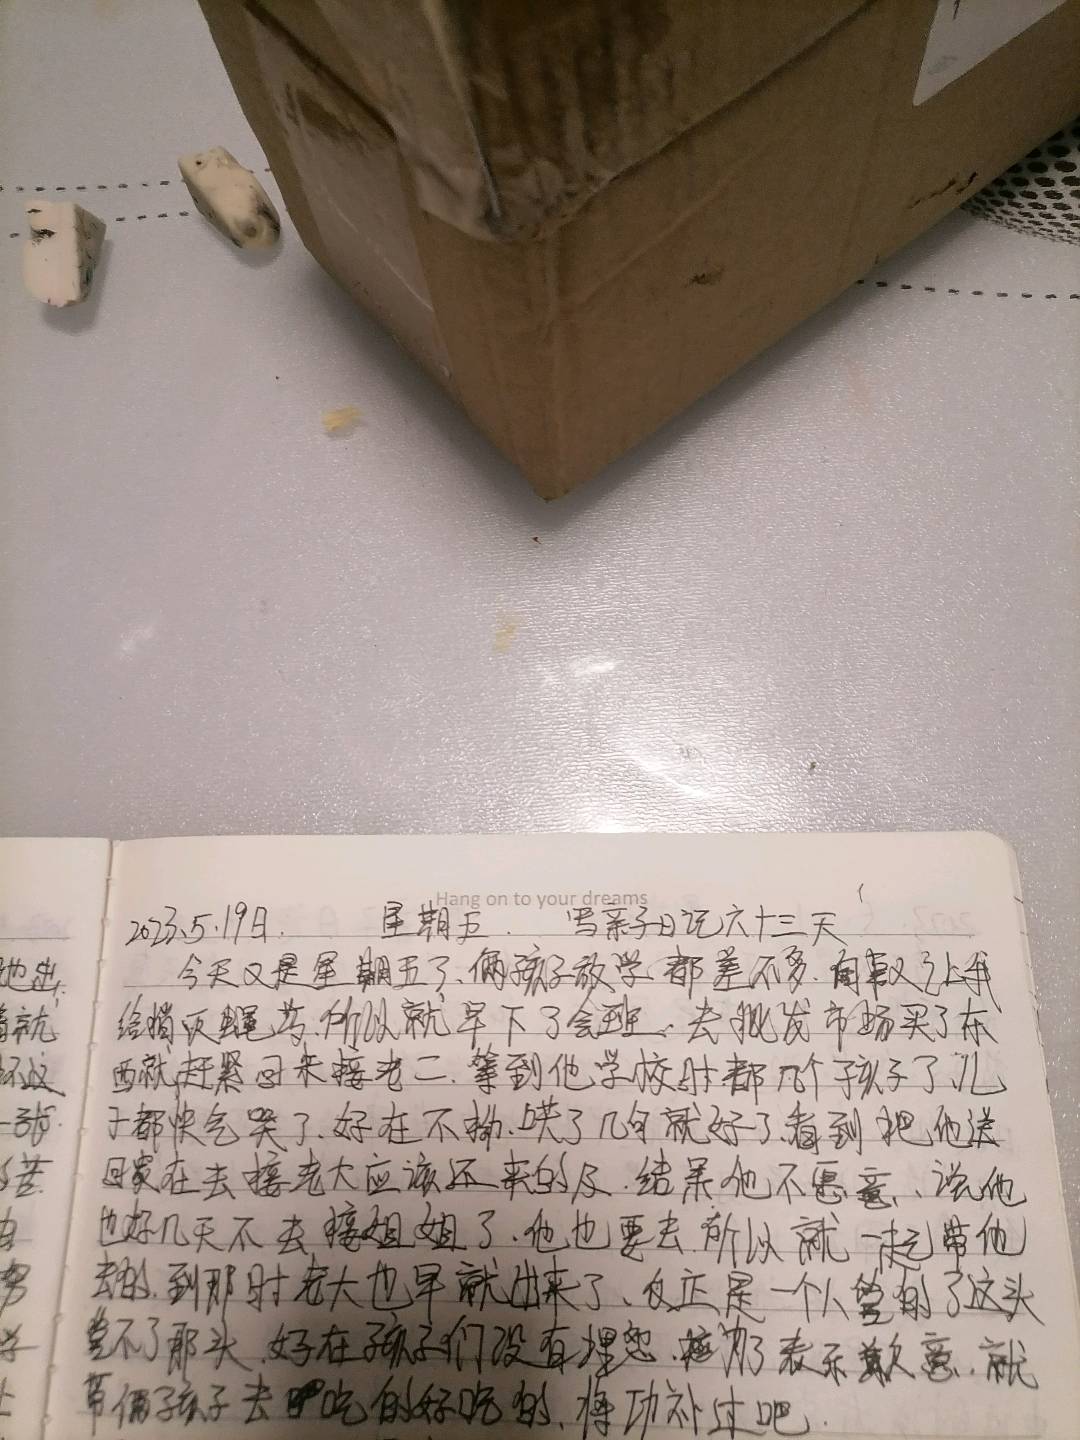 Hang on to your dreams
2023.5.19日. 星期五. 写亲子日记六十三天
今天又是星期五了、俩孩子放学都差不多. 又让我
给捎灭蝇药.所以就早下了会班、去批发市场买了东
西就赶紧回来接老二.等到他学校时都几个孩子了.儿
子都快气哭了.好在不拗.哄了几句就好了.看到把他送
回家在去接老大应该还来的及.结果他不愿意、说他
也好几天不去接姐姐了.他也要去.所以就一起带他
去的.到那时老大也早就出来了、反正是一个人管的了这头
管不了那头.好在孩子们没有埋怨.为了表示歉意.就
带俩孩子去吃的好吃的.将功补过吧.
地
着就
坏这
苦.
努
学
上